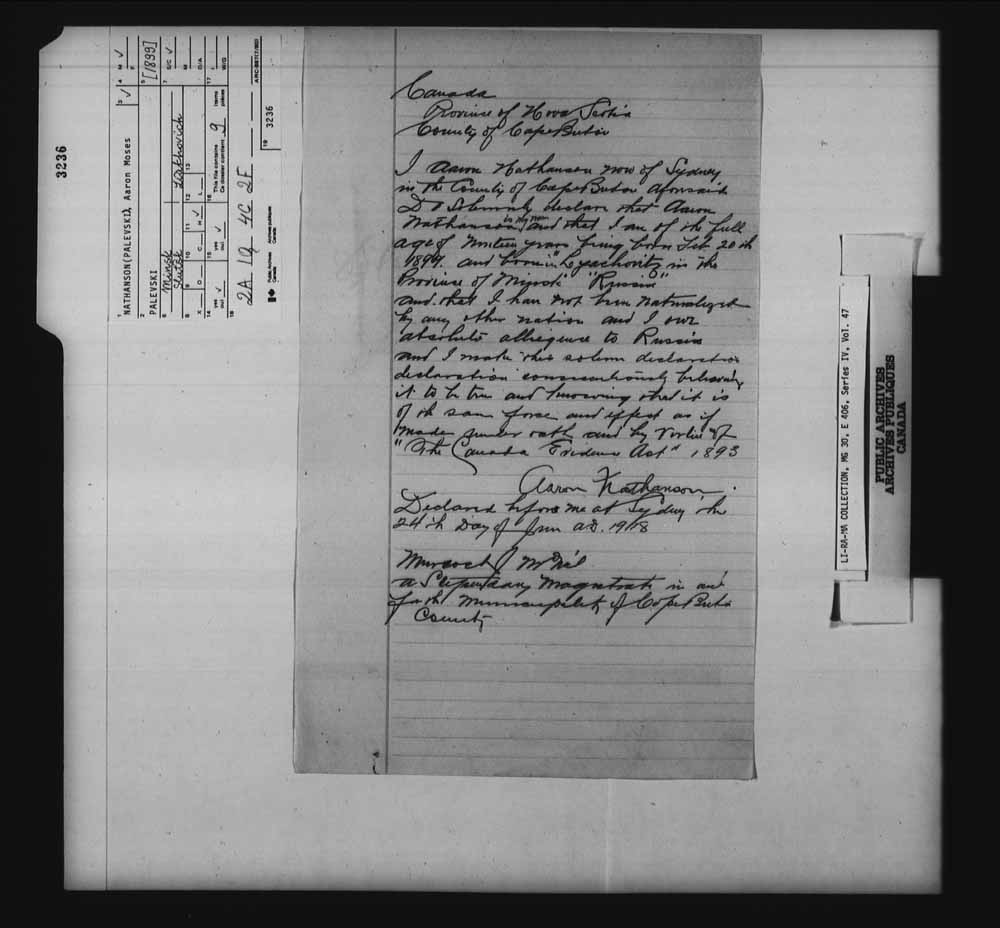 Canada
Province of Nova Scotia
County of Cape Breton
I Aaron Nathanson now of Sydney
in the County of Cape Breton aforesaid
Do Solemnly declare that Aaron
Nathanson is my name and that I am of the full
age of Nineteen years being born Feb 20th
1899. and born in in the
Province of "Minsk" "Russia"
and that I have not been naturalized
by any other nation and I owe
absolute allegience to Russia
and I make this solemn declaration
declaration conscientiously believing
it to be true and knowing that it is
of the same force and effect as if
made under oath and by virtue of
"The Canada Evidence Act" 1893
Aaron Nathanson.
Declared before me at Sydney the
24th Day of A.D. 1918
Murdoch McNeil
a Stipendiary Magistrate in and
for the Municipality of Cape Breton
County
3236
1 NATHANSON(PALEVSKI), Aaron Moses
2 PALEVSKI
3 ✓
4 M ✓ F
5 [1899]
6 Minsk
Slutsk
7 S/C ✓
8 X
9 D
10 C
11 H ✓
12 L
13
14 yes oui ✓
15 yes oui ✓
16 This file contains 9 items
Ce dossier contient pièces
17
18
2A 1Q 4C 2F
19 3236
Public Archives Archives publiques
Canada Canada
LI-RA-MA COLLECTION, MG 30, E 406, Series IV, Vol. 47
PUBLIC ARCHIVES
ARCHIVES PUBLIQUES
CANADA